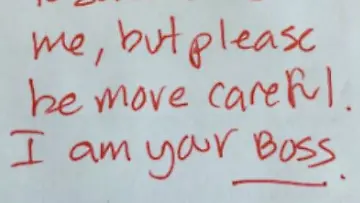 me, but please
be more careful.
I am your Boss.